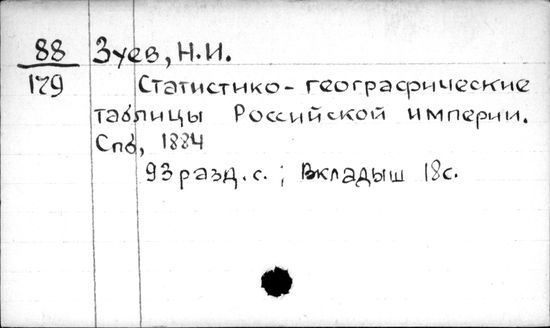 88 Зуев, Н.И.
179 Статистико-географические
таблицы Российской империи.
Спб, 1884
93 разд. с. ; Вкладыш 18с.